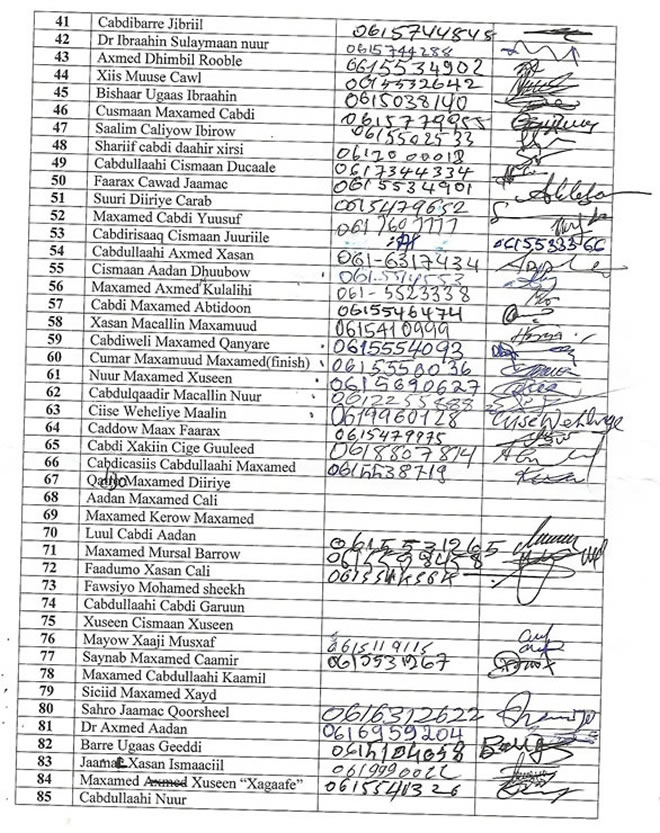 41 Cabdibarre Jibriil 0615744848
42 Dr Ibraahin Sulaymaan nuur 0615744288
43 Axmed Dhimbil Rooble 0615534902
44 Xiis Muuse Cawl 0615532642
45 Bishaar Ugaas Ibraahin 0615038140
46 Cusmaan Maxamed Cabdi 0615779955
47 Saalim Caliyow Ibirow 0615502533
48 Shariif cabdi daahir xirsi
49 Cabdullaahi Cismaan Ducaale 0617344334
50 Faarax Cawad Jaamac 0615534901
51 Suuri Diiriye Carab 0615479652
52 Maxamed Cabdi Yuusuf
53 Cabdirisaaq Cismaan Juuriile 0615533366
54 Cabdullaahi Axmed Xasan 061-6317434
55 Cismaan Aadan Dhuubow
56 Maxamed Axmed Kulalihi 061-5523338
57 Cabdi Maxamed Abtidoon 0615546474
58 Xasan Macallin Maxamuud 0615410999
59 Cabdiweli Maxamed Qanyare 0615554093
60 Cumar Maxamuud Maxamed(finish) 0615558036
61 Nuur Maxamed Xuseen 0615690627
62 Cabdulqaadir Macallin Nuur
63 Ciise Weheliye Maalin 0619960128
64 Caddow Maax Faarax 0615479975
65 Cabdi Xakiin Cige Guuleed 0618807814
66 Cabdicasiis Cabdullaahi Maxamed 0615538719
67 Maxamed Diiriye
68 Aadan Maxamed Cali
69 Maxamed Kerow Maxamed
70 Luul Cabdi Aadan 0615531265
71 Maxamed Mursal Barrow 0615598458
72 Faadumo Xasan Cali
73 Fawsiyo Mohamed sheekh
74 Cabdullaahi Cabdi Garuun
75 Xuseen Cismaan Xuseen
76 Mayow Xaaji Musxaf 0615119115
77 Saynab Maxamed Caamir 0615531267
78 Maxamed Cabdullaahi Kaamil
79 Siciid Maxamed Xayd
80 Sahro Jaamac Qoorsheel 0616312622
81 Dr Axmed Aadan 0616959204
82 Barre Ugaas Geeddi
83 Jaamac Xasan Ismaaciil 0619990022
84 Maxamed Axmed Xuseen “Xagaafe” 0615541326
85 Cabdullaahi Nuur